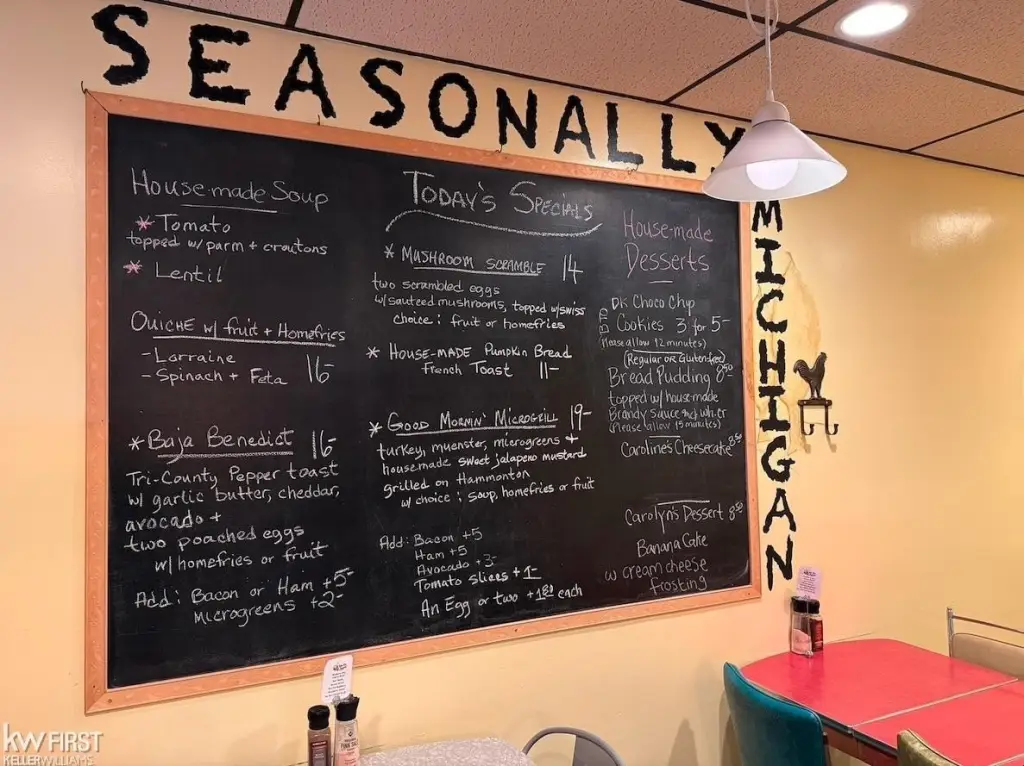 SEASONALLY
MICHIGAN
House-made Soup
* Tomato
topped w/ parm + croutons
* Lentil
QUICHE w/ fruit + Homefries
- Lorraine
- Spinach + Feta 16-
* Baja Benedict 16-
Tri-County Pepper toast
w/ garlic butter, cheddar,
avocado +
two poached eggs
w/ homefries or fruit
Add: Bacon or Ham +5-
Microgreens +2-
TODAY'S SPECIALS
* MUSHROOM SCRAMBLE 14
two scrambled eggs
w/ sauteed mushrooms, topped w/ swiss
choice: fruit or homefries
* HOUSE-MADE Pumpkin Bread
French Toast 11-
* GOOD MORNIN' MICROGRILL 19-
turkey, muenster, microgreens +
housemade sweet jalapeno mustard
grilled on Hammonton
w/ choice: soup, homefries or fruit
Add: Bacon +5
Ham +5
Avocado +3-
Tomato slices +1-
An Egg or two +1.80 each
House-made
Desserts
DK Choco Chip
Cookies 3 for 5-
(Please allow 12 minutes)
(Regular or Gluten-free)
Bread Pudding 8.50
topped w/ house-made
Brandy Sauce
(Please allow 15 minutes)
Caroline's Cheesecake 8.50
Carolyn's Dessert 8.50
Banana Cake
w cream cheese
frosting
kw FIRST
KELLERWILLIAMS